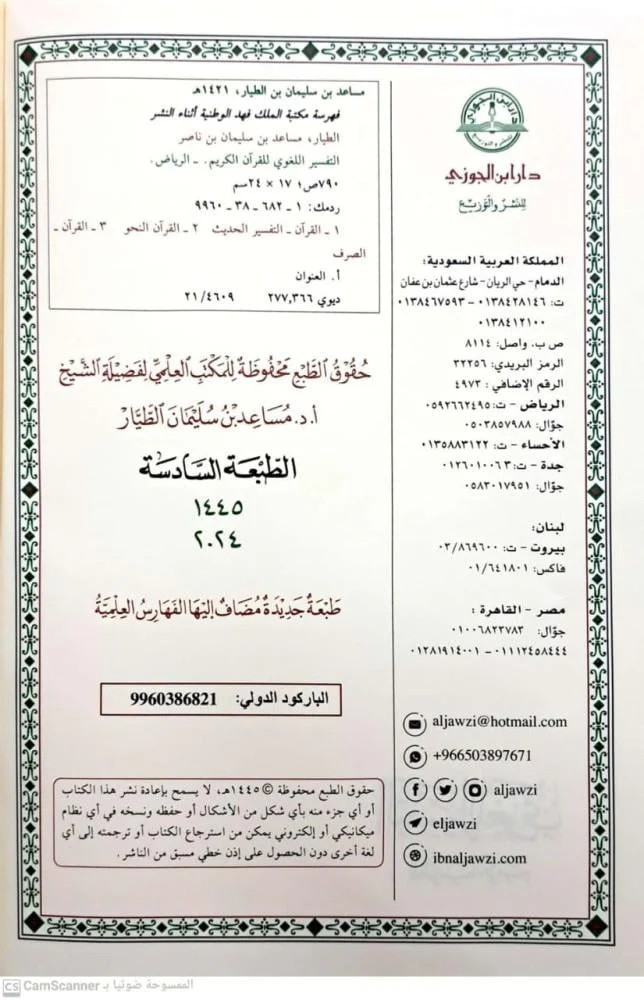 دار ابن الجوزي
للنشر والتوزيع
دار ابن الجوزي
لِلنَشْرِ والتَّوْزِيْعِ
المملكة العربية السعودية:
الدمام - حي الريان - شارع عثمان بن عفان
ت: ٠١٣٨٤٢٨١٤٦ - ٠١٣٨٤٦٧٥٩٣
٠١٣٨٤١٢١٠٠
ص ب. واصل: ٨١١٤
الرمز البريدي: ٣٢٢٥٦
الرقم الإضافي: ٤٩٧٣
الرياض - ت: ٠٥٩٢٦٦٢٤٩٥
جوّال: ٠٥٠٣٨٥٧٩٨٨
الأحساء - ت: ٠١٣٥٨٨٣١٢٢
جدة - ت: ٠١٢٦٠١٠٠٦٣
جوّال: ٠٥٨٣٠١٧٩٥١
لبنان:
بيروت - ت: ٠٣/٨٦٩٦٠٠
فاكس: ٠١/٦٤١٨٠١
مصر - القاهرة:
جوّال: ٠١٠٠٦٨٢٣٧٨٣
٠١١١٢٤٥٨٤٤٤ - ٠١٢٨١٩١٤٠٠١
aljawzi@hotmail.com
+966503897671
aljawzi
eljawzi
ibnaljawzi.com
مساعد بن سليمان بن الطيار، ١٤٢١هـ
فهرسة مكتبة الملك فهد الوطنية أثناء النشر
الطيار، مساعد بن سليمان بن ناصر
التفسير اللغوي للقرآن الكريم. - الرياض.
٧٩٠ص؛ ١٧ × ٢٤سم
ردمك: ١ - ٦٨٢ - ٣٨ - ٩٩٦٠
١ - القرآن - التفسير الحديث ٢ - القرآن النحو ٣ - القرآن -
الصرف
أ. العنوان
ديوي ٢٧٧,٣٦٦ ٢١/٤٦٠٩
حُقُوقُ الطَّبْعِ مَحْفُوظَةٌ لِلْمَكْتَبِ العِلْمِيِّ لفَضِيْلَةِ الشَّيْخِ
أ.د. مُسَاعِدِ بْنِ سُلَيْمَانَ الطَّيَّارْ
الطَّبْعَة السَّادسَة
١٤٤٥
٢٠٢٤
طَبْعَةٌ جَدِيْدَةٌ مُضَافٌ إليْهَا الفَهَارِسُ العِلْمِيَّةُ
الباركود الدولي: 9960386821
حقوق الطبع محفوظة © ١٤٤٥هـ، لا يسمح بإعادة نشر هذا الكتاب
أو أي جزء منه بأي شكل من الأشكال أو حفظه ونسخه في أي نظام
ميكانيكي أو إلكتروني يمكن من استرجاع الكتاب أو ترجمته إلى أي
لغة أخرى دون الحصول على إذن خطي مسبق من الناشر.
CS CamScanner الممسوحة ضوئيا بـ